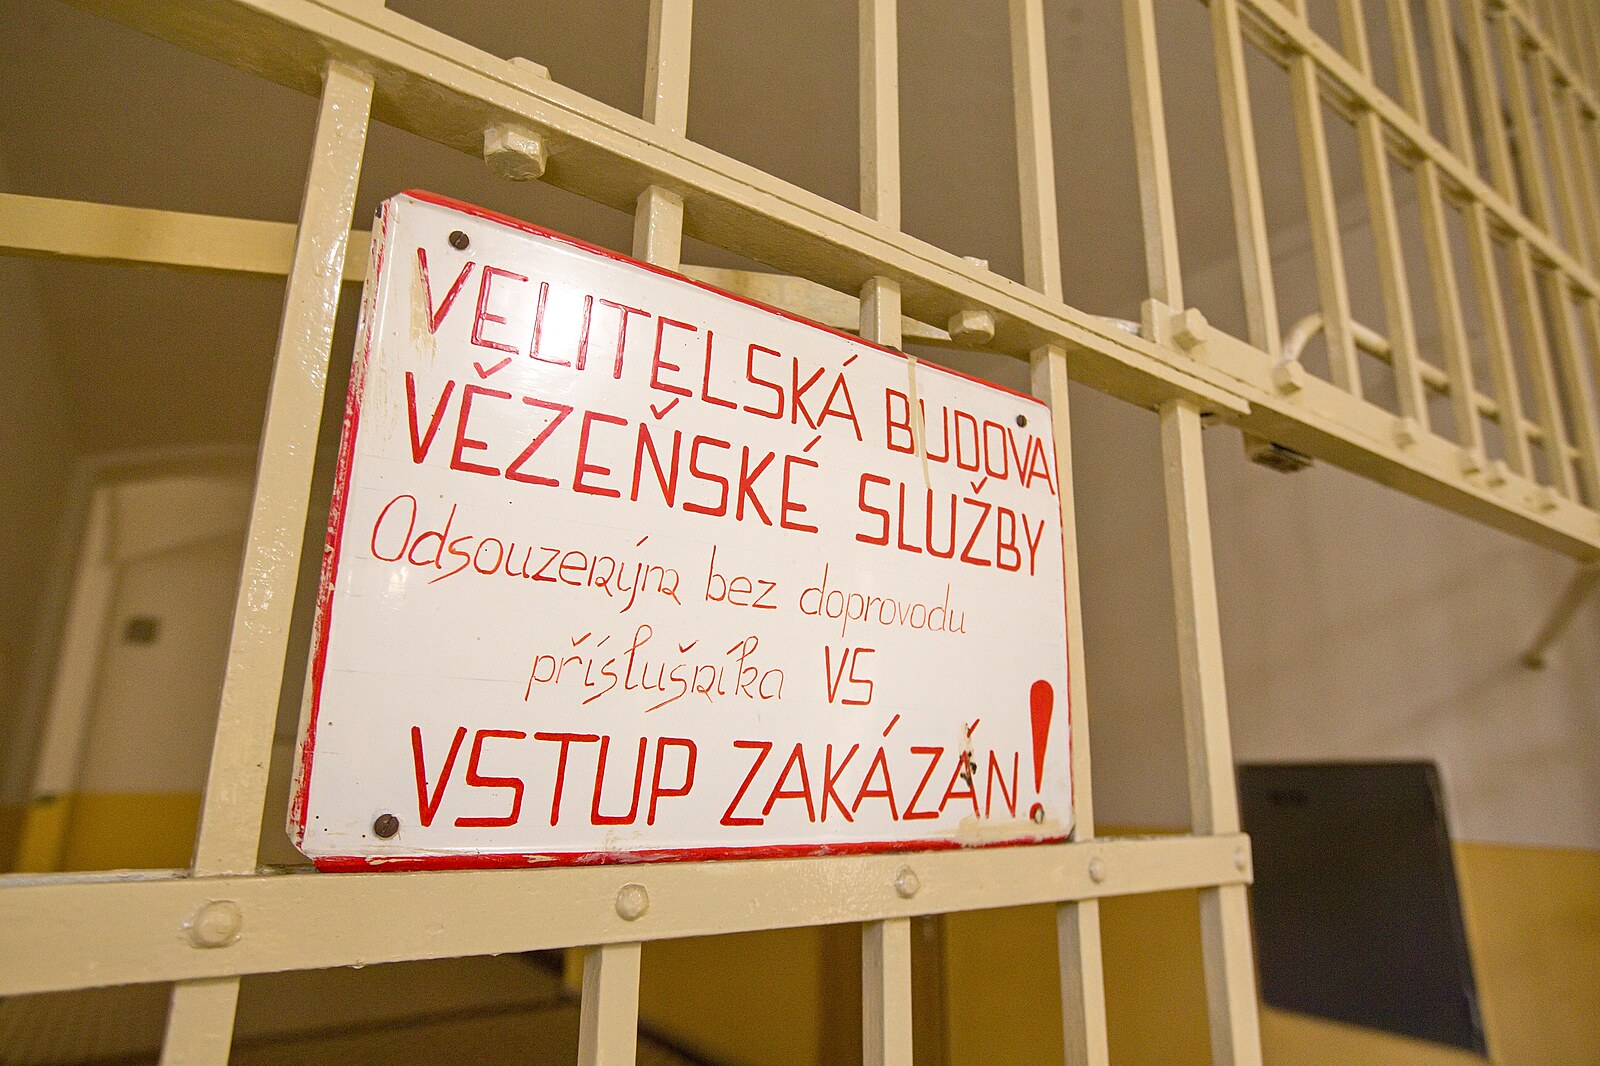 VELITELSKÁ BUDOVA
VĚZEŇSKÉ SLUŽBY
Odsouzeným bez doprovodu
příslušníka VS
VSTUP ZAKÁZÁN!